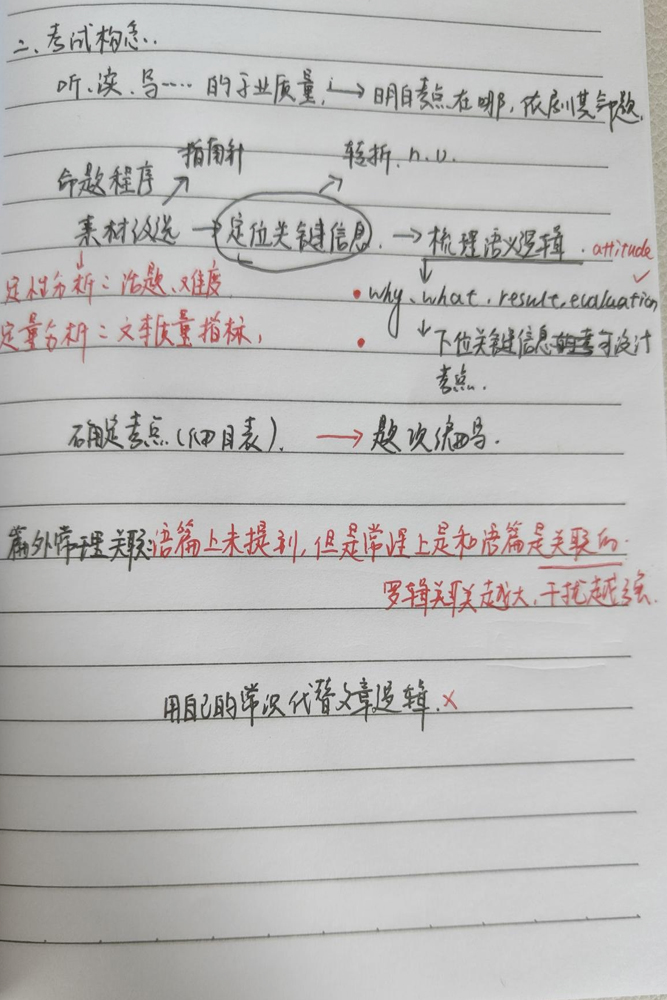 二、考试构念.
听、读、写……的学业质量, → 明白考点在哪, 依据其命题.
指南针 转折. n. v.
命题程序
素材改选 → 定位关键信息. → 梳理语义逻辑. attitude
定性分析:话题、难度 • why. what. result. evaluation ✓
定量分析:文本质量指标, • 下位关键信息 可设计
考点.
确定考点(细目表). → 题项编写.
篇外常理关联:语篇上未提到, 但是常理上是和语篇是关联的.
逻辑关联越大, 干扰越强.
用自己的常识代替文章逻辑. ×